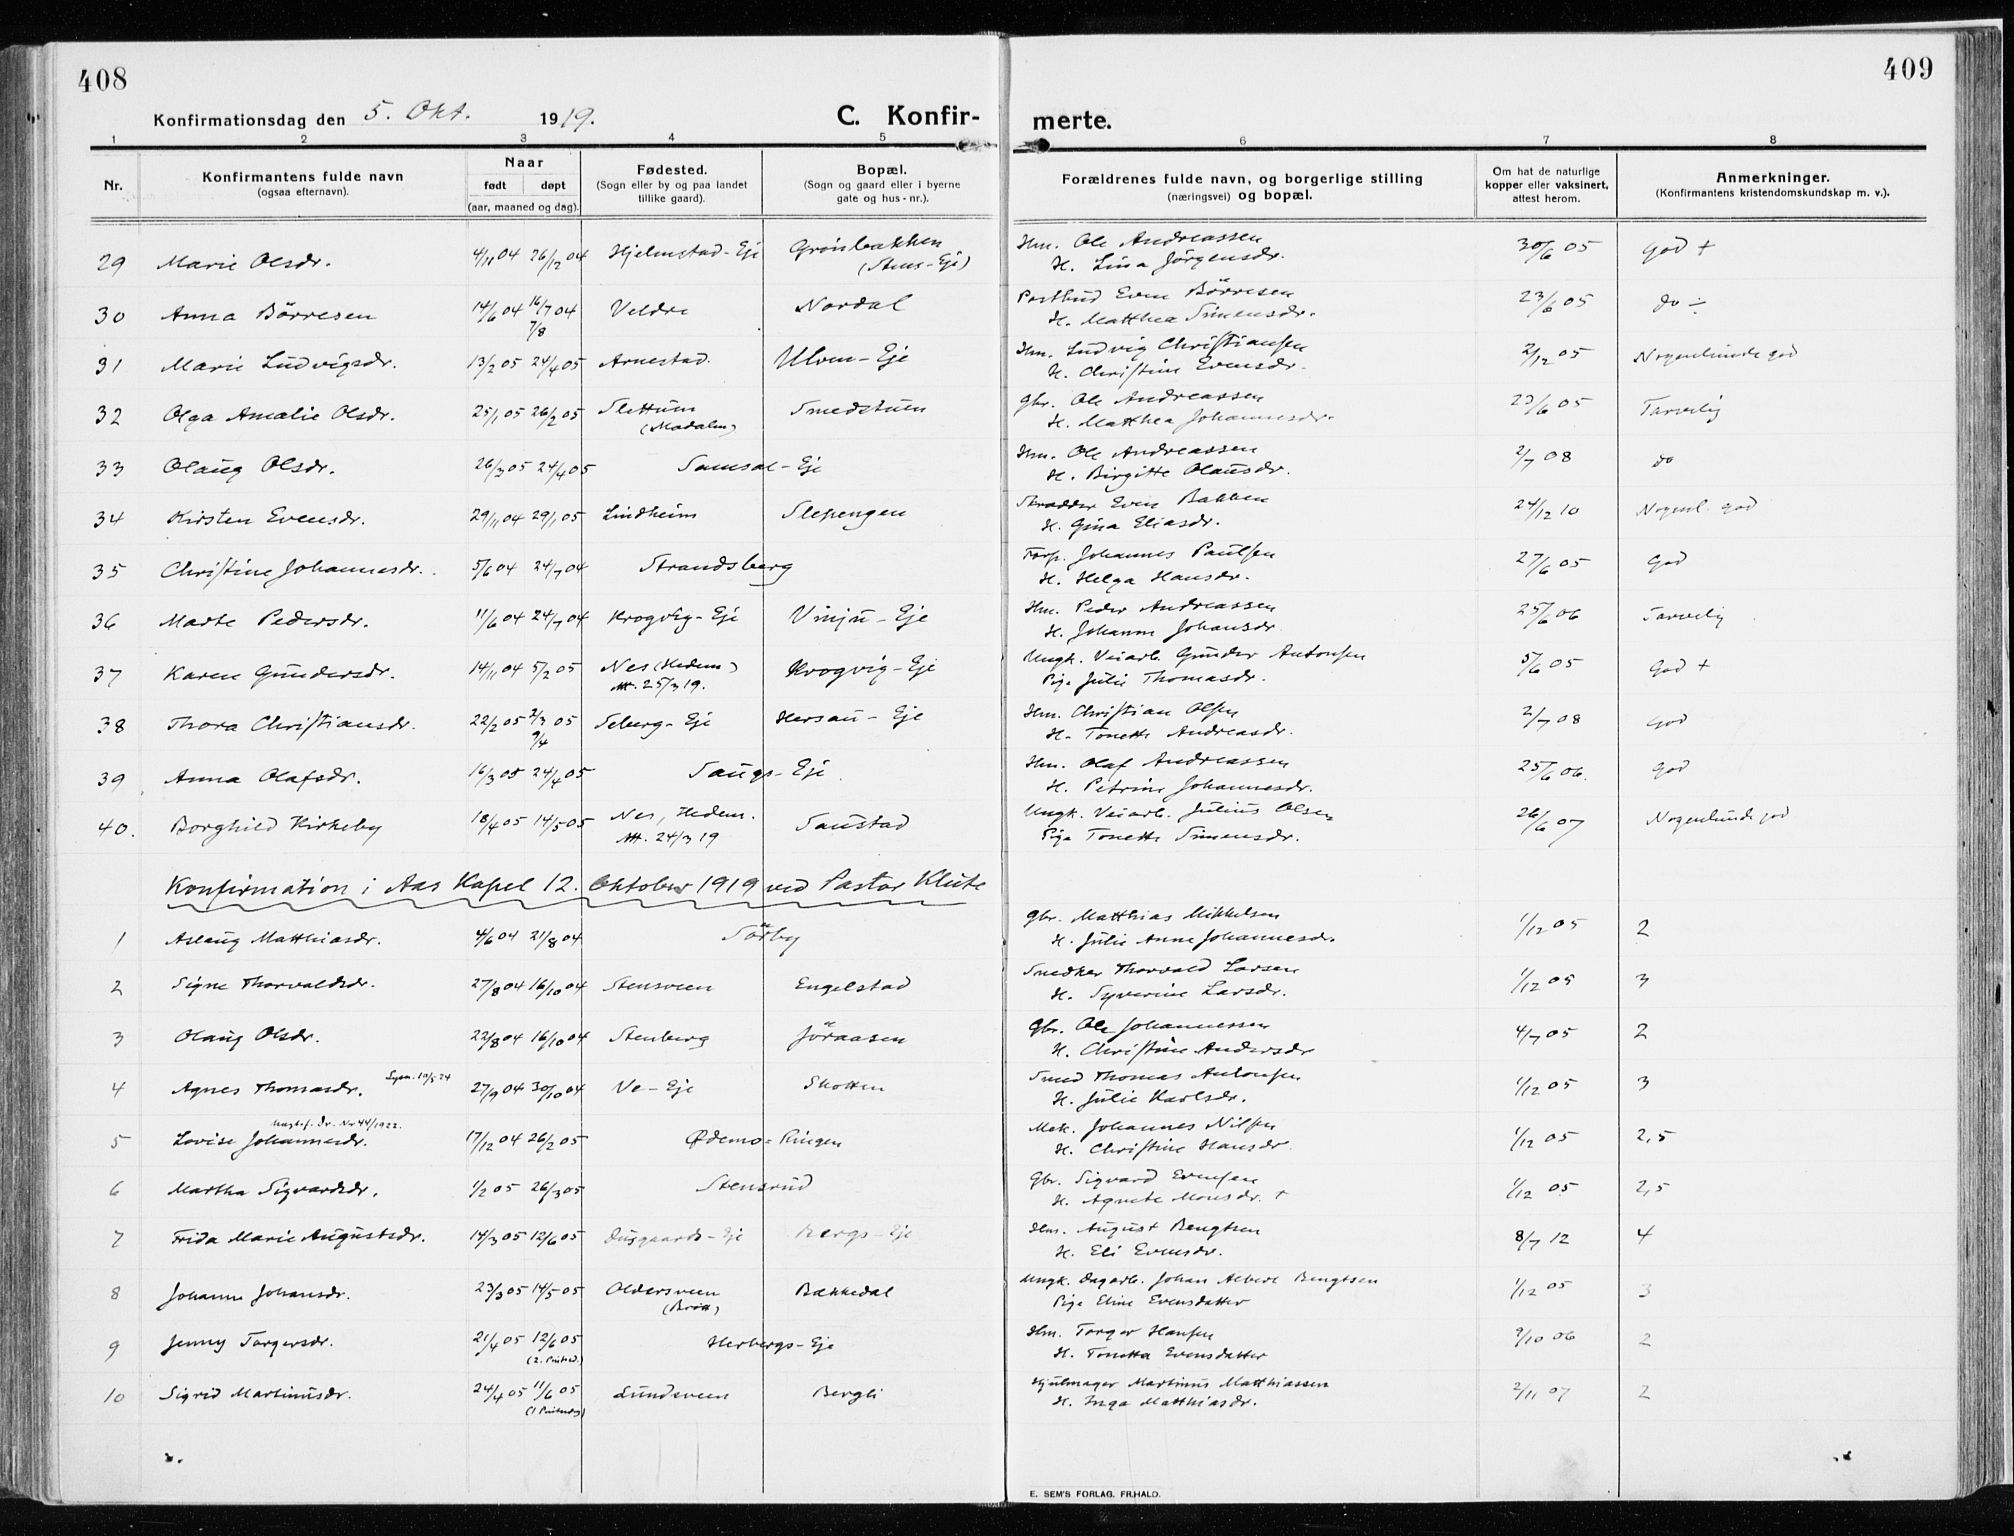 408
409
Konfirmationsdag den 5. Okt. 1919.
C. Konfir- merte.
1 2 3 4 5 6 7 8
Nr.
Konfirmantens fulde navn
(ogsaa efternavn).
Naar
født døpt
(aar, maaned og dag).
Fødested.
(Sogn eller by og paa landet
tillike gaard).
Bopæl.
(Sogn og gaard eller i byerne
gate og hus-nr.).
Forældrenes fulde navn, og borgerlige stilling
(næringsvei) og bopæl.
Om hat de naturlige
kopper eller vaksinert,
attest herom.
Anmerkninger.
(Konfirmantens kristendomskundskap m. v.).
29 Marie Olsdr. 4/11 04 26/12 04 Hjelmstad-Eje Grönbakken (Stens-Eje) Hm. Ole Andreassen 30/6 05 God +
H. Lina Jörgensdr.
30 Anna Börresen 14/6 04 16/7 04 7/8 Veldre Nordal Postbud Even Börresen 23/6 05 do ÷
H. Matthea Simensdr.
31 Marie Ludvigsdr. 13/2 05 24/4 05 Arnestad. Ulven-Eje Hm. Ludvig Christiansen 2/12 05 Nogenlunde god
H. Christine Evensdr.
32 Olga Amalie Olsdr. 25/1 05 26/2 05 Slettum Smedstuen Gbr. Ole Andreassen 23/6 05 Tarvelig
H. Matthea Johannesdr.
33 Olaug Olsdr. 26/3 05 24/4 05 Samsal-Eje Hm. Ole Andreassen 2/7 08 do
H. Birgitte Olausdr.
34 Kirsten Evensdr. 29/11 04 29/1 05 Lindheim Slepengen Skrædder Even Bakken 24/12 10 Nogenl. god
H. Gina Eliasdr.
35 Christine Johannesdr. 5/6 04 24/7 04 Strandsberg Forp. Johannes Paulsen 27/6 05 God
H. Helga Hansdr.
36 Marte Pedersdr. 11/6 04 24/7 04 Krogvig-Eje Vinju-Eje Hm. Peder Andreassen 25/6 06 Tarvelig
H. Johanne Johansdr.
37 Karen Gundersdr. 14/11 04 5/2 05 Nes (Hedem) Att. 25/3 19. Krogvig-Eje Ungk. Veiarb. Gunder Antonsen 5/6 05 God +
Pige Julie Thomasdr.
38 Thora Christiansdr. 22/2 05 2/3 05 9/4 Seberg-Eje Hersau-Eje Hm. Christian Olsen 2/7 08 God
H. Tonette Andreasdr.
39 Anna Olafsdr. 16/3 05 24/4 05 Saugs-Eje Hm. Olaf Andreassen 25/6 06. God
H. Petrine Johannesdr.
40. Borghild Kirkeby 18/4 05 14/5 05 Nes, Hedem. Att. 24/3 19 Saustad Ungk. Veiarb. Julius Olsen 26/6 07 Nogenlunde god
Pige Tonette Simensdr.
Konfirmation i Aas Kapel 12. Oktober 1919 ved Pastor Klüte
1 Aslaug Matthiasdr. 4/6 04 21/8 04 Sörby Gbr. Matthias Mikkelsen 1/12 05 2
H. Julie Anne Johannesdr.
2 Signe Thorvaldsdr. 27/8 04 16/10 04 Stensveen Engelstad Snedker Thorvald Larsen 1/12 05 3
H. Syverine Larsdr.
3 Olaug Olsdr. 22/8 04 16/10 04 Stenberg Jöraasen Gbr. Ole Johannessen 4/7 05 2
H. Christine Andersdr
4 Agnes Thomasdr. 27/9 04 30/10 04 Ve-Eje Skotten Smed Thomas Antonsen 1/12 05 3
H. Julie Karlsdr.
5 Lovise Johannesdr. 17/12 04 26/2 05 Ødemo-Ringen Mek. Johannes Nilsen 1/12 05 2,5
H. Christine Hansdr.
6 Martha Sigvardsdr. 1/2 05 26/3 05 Stensrud Gbr. Sigvard Evensen 1/12 05 2,5
H. Agnete Monsdr. +
7 Frida Marie Augustsdr. 14/3 05 12/6 05 Dusgaards-Eje Bergs-Eje Hm. August Bengtsen 8/7 12 4
H. Eli Evensdr.
8 Johanne Johansdr. 23/3 05 14/5 05 Oldersveen (Brött) Bakkedal Ungk. Dagarb. Johan Albert Bengtsen 1/12 05 3
Pige Eline Evensdatter
9 Jenny Torgersdr. 21/4 05 12/6 05 (2. Pintsed.) Herbergs-Eje Hm. Torger Hansen 9/10 06 2
H. Tonetta Evensdatter
10 Sigrid Martinusdr. 24/4 05 11/6 05 Lundsveen Bergli Hjulmager Martinus Matthiassen 2/11 07 2
H. Inga Matthiasdr.
E. SEM'S FORLAG. FR.HALD.